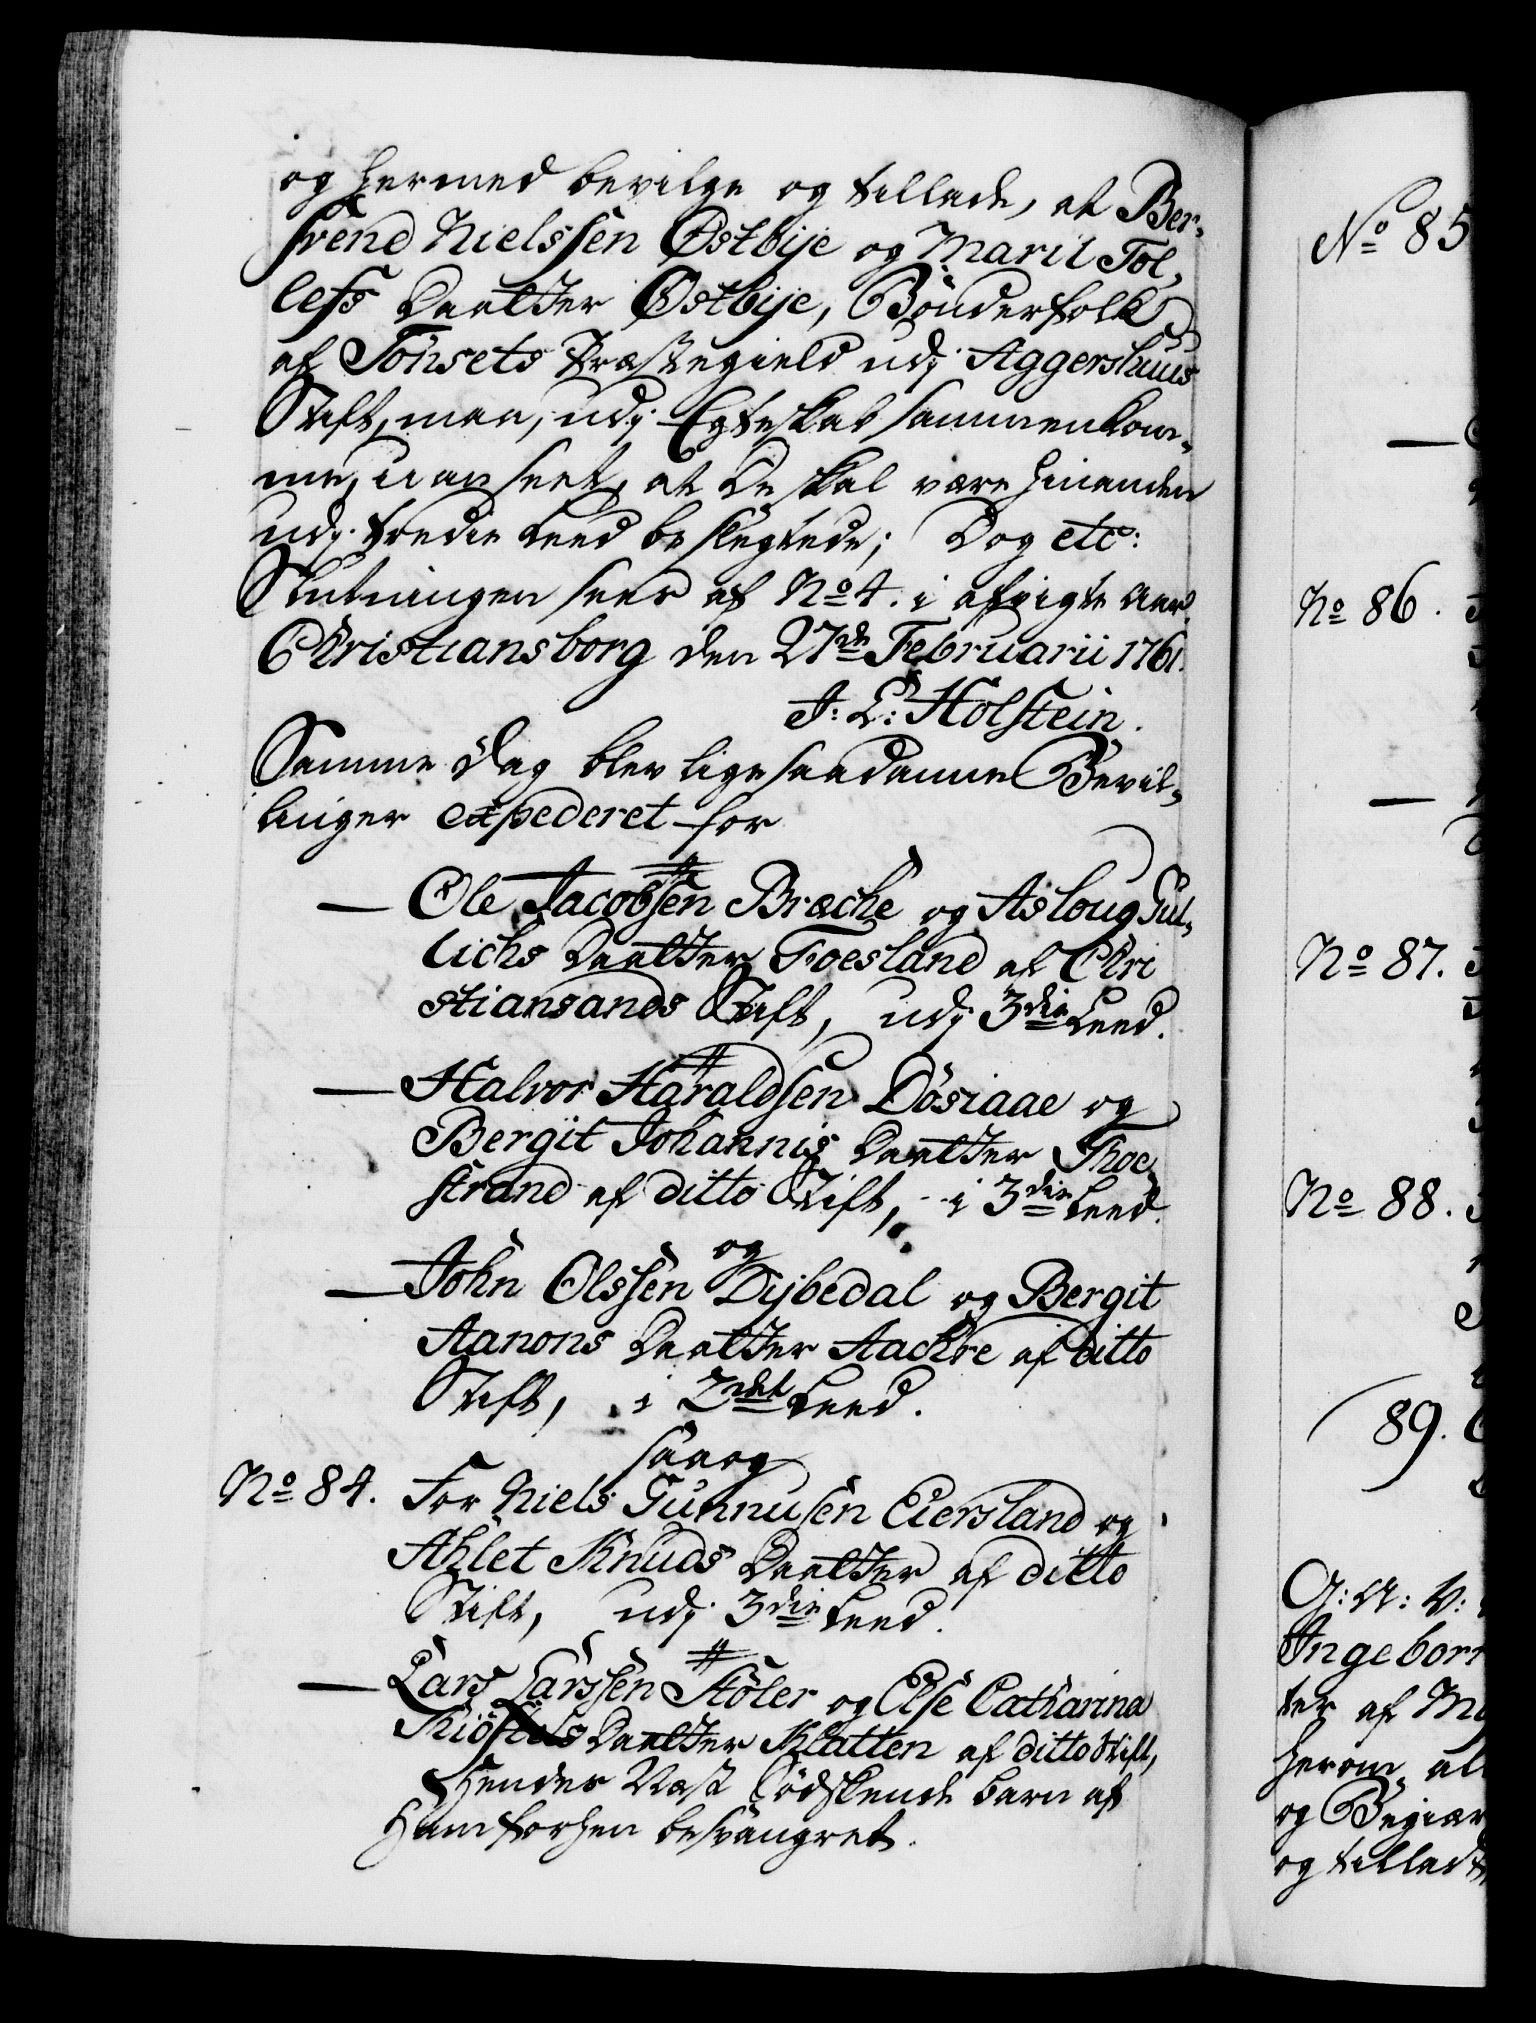 og hermed bevilge og tillade, at Ber-
svend Nielssen Østbije og Marit Tol-
lefs Daatter Østbije, Bönderfolk
af Tönsets Præstegield udj Aggershuus
Stift, maa, udj Egteskab sammenkom-
me, uanseet, at De skal være hinanden
udj tredie Leed beslegtede; Dog etc:
Slutningen seer af No 4. i afvigte Aar.
Christiansborg den 27de Februarii 1761.
J: L: Holstein.
Samme Dag blev ligesaadanne Bevil-
linger expederet for
— Ole Jacobsen Bræche og Asloug Gul-
lichs Daatter Foesland af Chri
stiansands Stift, udj 3die Leed.
— Halvor Haraldsen Dösiaae og
Bergit Johannis Daatter Thoe-
strand af ditto Stift, i 3die Leed.
og
— John Olssen Dijbedal og Bergit
Aanons Daatter Aachre af ditto
Stift, i 2det Leed.
saa og
No 84. For Niels Gunnusen Eiersland og
Ahlet Knuds Daatter af ditto
Stift, udj 3die Leed.
— Lars Larssen Stöler og Else Catharina
Daatter Klatten af ditto Stift,
Hendes Næst Södskende barn af
Ham forhen besvangret.
No 85
No 86.
No 87.
No 88.
89.
G: A: V:
Ingebor
ter af
herom al
og Begiær
og tillade